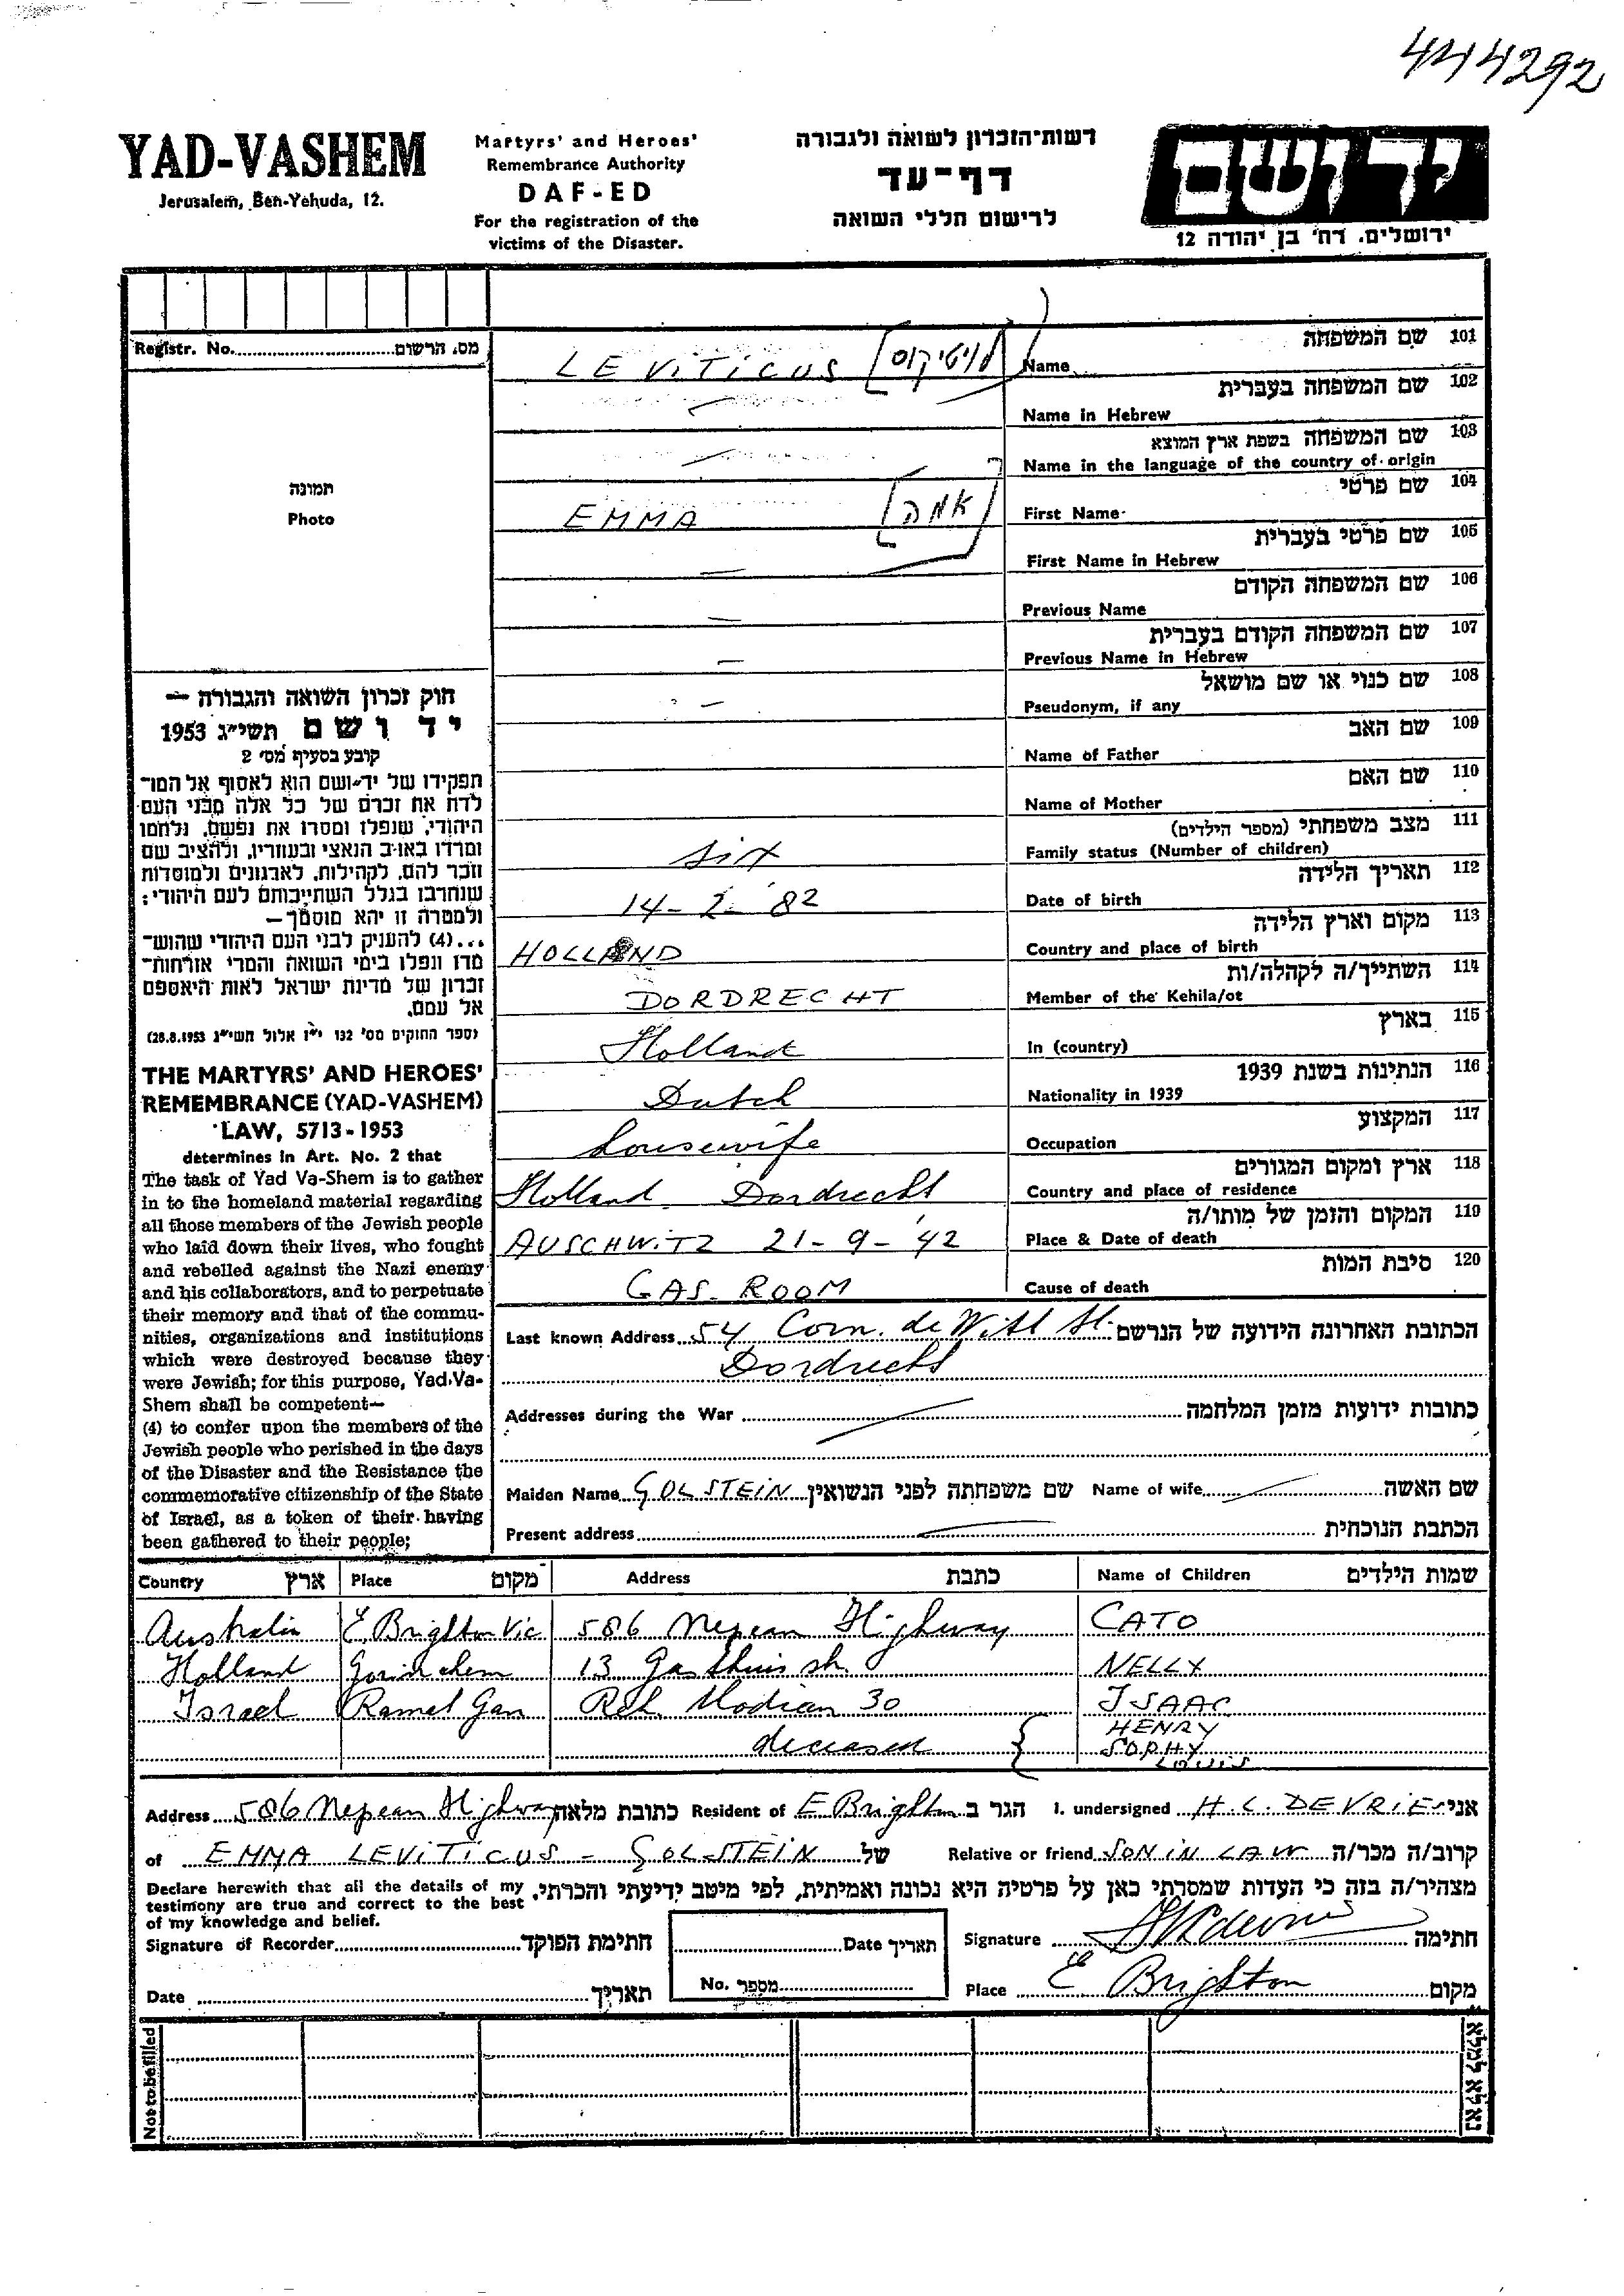 444292
YAD-VASHEM
Jerusalem, Ben-Yehuda, 12.
Martyrs' and Heroes'
Remembrance Authority
DAF-ED
For the registration of the
victims of the Disaster.
רשות-הזכרון לשואה ולגבורה
דף-עד
לרישום חללי השואה
יד ושם
ירושלים, רח' בן יהודה 12
Registr. No. מס. הרשום
תמונה
Photo
חוק זכרון השואה והגבורה —
יד ושם תשי״ג 1953
קובע בסעיף מס׳ 2
תפקידו של יד-ושם הוא לאסוף אל המו-
לדת את זכרם של כל אלה מבני העם
היהודי, שנפלו ומסרו את נפשם, נלחמו
ומרדו באויב הנאצי ובעוזריו, ולהציב שם
וזכר להם, לקהילות, לארגונים ולמוסדות
שנחרבו בגלל השתייכותם לעם היהודי;
ולמטרה זו יהא מוסמך—
...(4) להעניק לבני העם היהודי שהוש-
מדו ונפלו בימי השואה והמרי אזרחות-
זכרון של מדינת ישראל לאות היאספם
אל עמם.
(ספר החוקים מס׳ 132 י״ז אלול תשי״ג 28.8.1953)
THE MARTYRS' AND HEROES'
REMEMBRANCE (YAD-VASHEM)
LAW, 5713-1953
determines in Art. No. 2 that
The task of Yad Va-Shem is to gather
in to the homeland material regarding
all those members of the Jewish people
who laid down their lives, who fought
and rebelled against the Nazi enemy
and his collaborators, and to perpetuate
their memory and that of the commu-
nities, organizations and institutions
which were destroyed because they
were Jewish; for this purpose, Yad Va-
Shem shall be competent—
(4) to confer upon the members of the
Jewish people who perished in the days
of the Disaster and the Resistance the
commemorative citizenship of the State
of Israel, as a token of their having
been gathered to their people;
LEVITICUS [לויטיקוס] Name שם המשפחה 101
Name in Hebrew שם המשפחה בעברית 102
Name in the language of the country of origin שם המשפחה בשפת ארץ המוצא 103
EMMA [אמה] First Name שם פרטי 104
First Name in Hebrew שם פרטי בעברית 105
Previous Name שם המשפחה הקודם 106
Previous Name in Hebrew שם המשפחה הקודם בעברית 107
Pseudonym, if any שם כנוי או שם מושאל 108
Name of Father שם האב 109
Name of Mother שם האם 110
six Family status (Number of children) מצב משפחתי (מספר הילדים) 111
14-2-'82 Date of birth תאריך הלידה 112
HOLLAND Country and place of birth מקום וארץ הלידה 113
DORDRECHT Member of the Kehila/ot השתייך/ה לקהלה/ות 114
Holland In (country) בארץ 115
Dutch Nationality in 1939 הנתינות בשנת 1939 116
housewife Occupation המקצוע 117
Holland Dordrecht Country and place of residence ארץ ומקום המגורים 118
AUSCHWITZ 21-9-'42 Place & Date of death המקום והזמן של מותו/ה 119
GAS-ROOM Cause of death סיבת המות 120
Last known Address 54 Corn. de Witt St. הכתובת האחרונה הידועה של הנרשם
Dordrecht
Addresses during the War כתובות ידועות מזמן המלחמה
Maiden Name GOLSTEIN שם משפחתה לפני הנשואין Name of wife שם האשה
Present address הכתבת הנוכחית
Country ארץ Place מקום Address כתבת Name of Children שמות הילדים
Australia E Brighton Vic 586 Nepean Highway CATO
Holland Gorinchem 13 Gasthuis str. NELLY
Israel Ramat Gan Reh. Modian 30 ISAAC
HENRY
deceased { SOPHY
LOUIS
Address 586 Nepean Highway כתובת מלאה Resident of E Brighton הגר ב I. undersigned H. L. DEVRIES אני
of EMMA LEVITICUS - GOLSTEIN של Relative or friend SON IN LAW קרוב/ה מכר/ה
Declare herewith that all the details of my
testimony are true and correct to the best
of my knowledge and belief.
מצהיר/ה בזה כי העדות שמסרתי כאן על פרטיה היא נכונה ואמיתית, לפי מיטב ידיעתי והכרתי.
Signature of Recorder חתימת הפוקד Date תאריך Signature חתימה
Date תאריך No. מספר Place E Brighton מקום
Not to be filled נא לא למלא